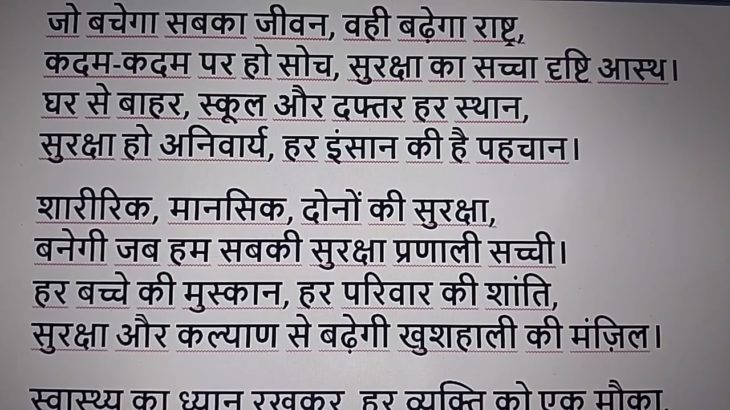 जो बचेगा सबका जीवन, वही बढ़ेगा राष्ट्र,
कदम-कदम पर हो सोच, सुरक्षा का सच्चा दृष्टि आस्थ।
घर से बाहर, स्कूल और दफ्तर हर स्थान,
सुरक्षा हो अनिवार्य, हर इंसान की है पहचान।
शारीरिक, मानसिक, दोनों की सुरक्षा,
बनेगी जब हम सबकी सुरक्षा प्रणाली सच्ची।
हर बच्चे की मुस्कान, हर परिवार की शांति,
सुरक्षा और कल्याण से बढ़ेगी खुशहाली की मंज़िल।
स्वास्थ्य का ध्यान रखकर, हर व्यक्ति को एक मौका,